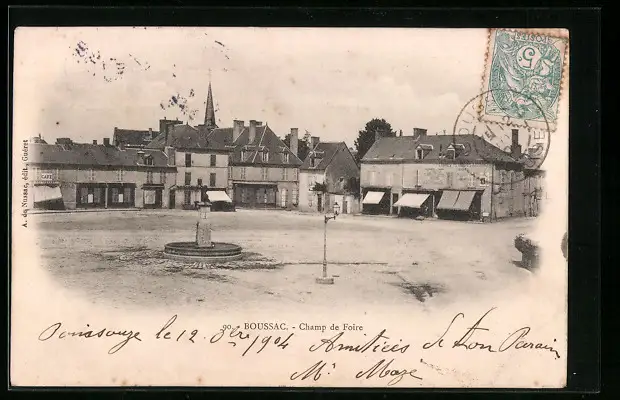 A. de Nussac, édit., Guéret
CAFÉ
5
90. - BOUSSAC. - Champ de Foire
le 12 1904 Amitiés de ton Parrain,
Mr Mazé